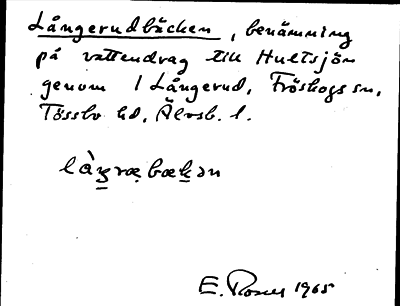 Långerudbäcken, benämning
på vattendrag till Hultsjön
genom 1 Långerud, Fröskogs sn,
Tössbo hd, Älvsb. l.
làŋræbækən
E. Rosus 1965